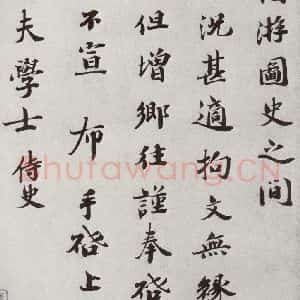 游圖史之間
況甚適拘文無緣
但增鄉往謹奉啓
不宣 布 手啓上
夫學士 侍史
Shufawang.CN